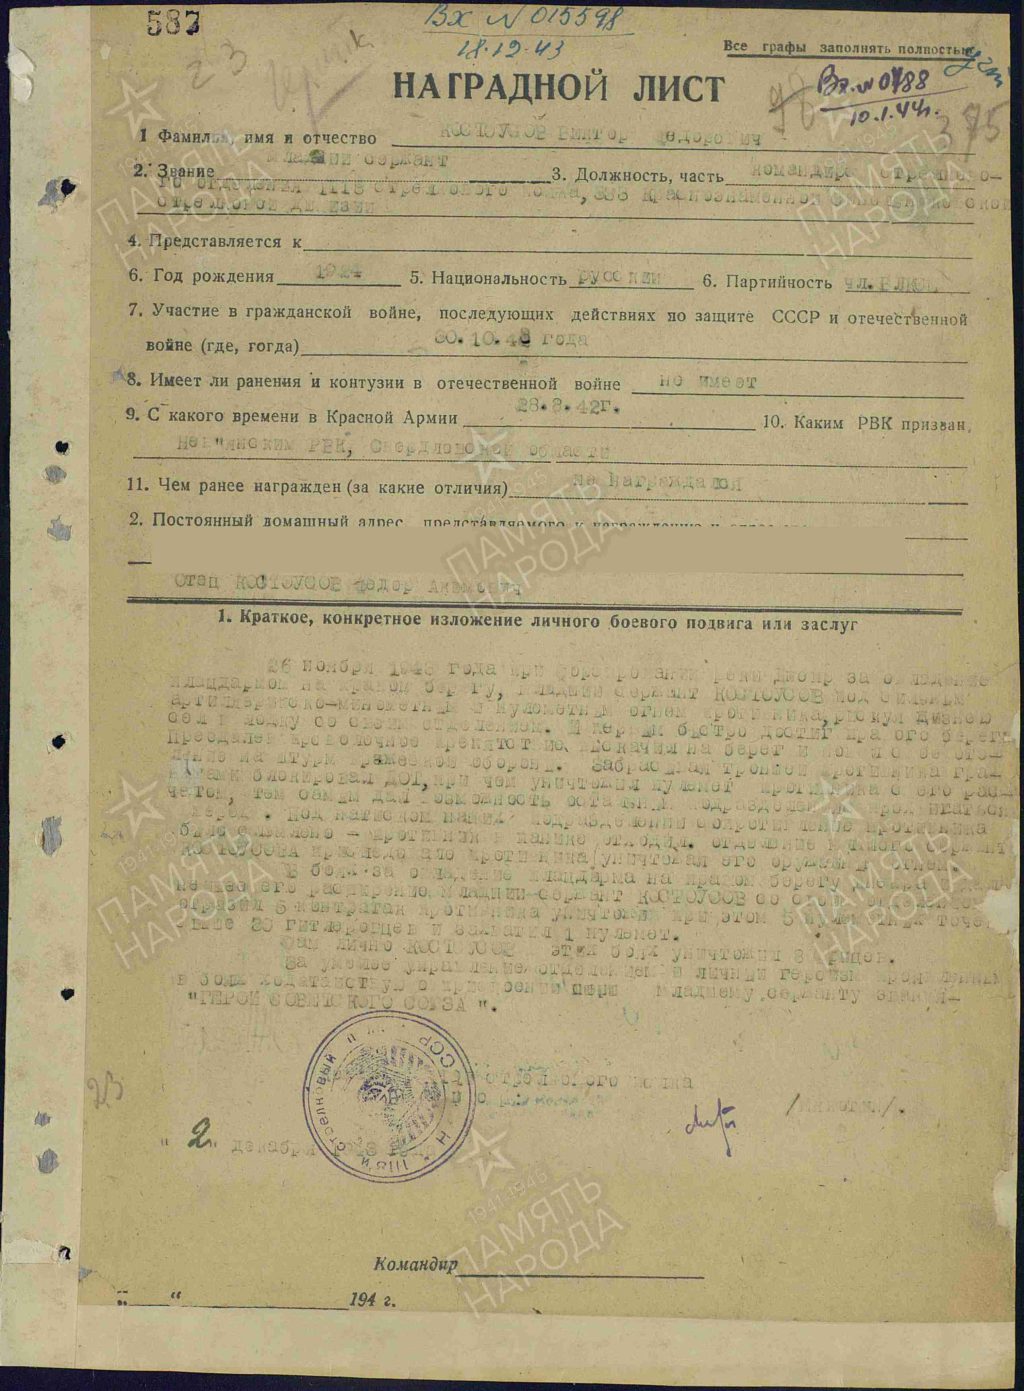 587
Вх N 015598
18.12.43
23
Все графы заполнять полностью
НАГРАДНОЙ ЛИСТ
Вх. N 0788
10.1.44г.
375
1 Фамилия, имя и отчество КОСТОУСОВ Виктор Федорович
младший сержант
2. Звание 3. Должность, часть командир стрелково-
го отделения 1118 стрелкового полка, 333 Краснознаменной
стрелковой дивизии
4. Представляется к
6. Год рождения 1924 5. Национальность русский 6. Партийность чл.ВЛКСМ
7. Участие в гражданской войне, последующих действиях по защите СССР и отечественной
войне (где, гогда) 30.10.43 года
8. Имеет ли ранения и контузии в отечественной войне не имеет
9. С какого времени в Красной Армии 28.8.42г. 10. Каким РВК призван
Невьянским РВК, Свердловской области
11. Чем ранее награжден (за какие отличия) не награждался
2. Постоянный домашный адрес представляемого к награждению и
Отец КОСТОУСОВ Федор
1. Краткое, конкретное изложение личного боевого подвига или заслуг
26 ноября 1943 года при форсировании реки Днепр за овладение
плацдармом на правом берегу, младший сержант КОСТОУСОВ под сильным
артиллерийско-минометным и пулеметным огнем противника, рискуя жизнью
сел в лодку со своим отделением. И первым быстро достиг правого берега
Преодалев проволочное препятствие. Вскочил на берег и повел свое отде-
ление на штурм вражеской обороны. Забросал траншеи противника гран-
атами блокировал ДОТ, при чем уничтожил пулемет противника с его расч-
четом, тем самым дал возможность остальным подразделениям продвигаться
вперед. Под натиском наших подразделений сопротивление противника
было сломлено - противник в панике отходил. отделение младшего сержант
КОСТОУСОВА преследовало противника уничтожая его оружейным огнем.
В боях за овладение плацдарма на правом берегу Днепра
расширение младший-сержант КОСТОУСОВ со своим отделением
отразил 6 контратак противника уничтожил при этом 5 пулеметных точек
свыше 20 гитлеровцев и захватил 1 пулемет.
Сам лично КОСТОУСОВ этих боях уничтожил 8 фрицев.
За умелое управление отделением и личный героизм проявленный
в боях ходатайствую о присвоении младшему сержанту звания-
"ГЕРОЙ СОВЕТСКОГО СОЮЗА ".
стрелкового полка
23
"2" декабря 1943 года
Командир
"___" 194 г.
стрелковый
1118
СССР
ПАМЯТЬ НАРОДА
1941-1945